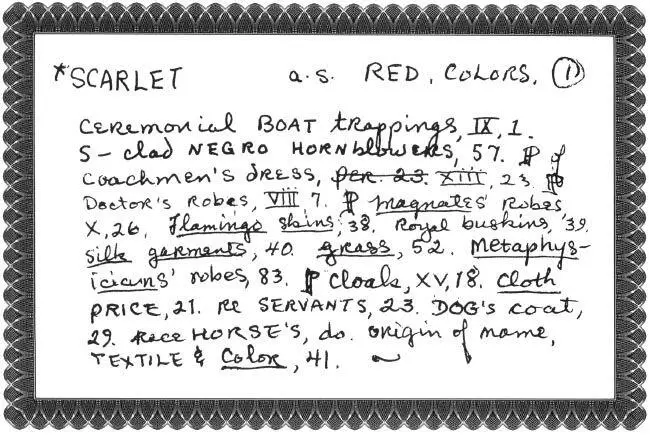 *SCARLET a.s. RED, COLORS, ①
Ceremonial BOAT trappings, IX, 1.
S-clad NEGRO HORNblowERS, 57. P of
COACHMEN'S DRESS, per. 23. XIII, 23. P
Doctor's Robes, VIII 7. P magnates' Robes
X, 26, Flamingo skins, 38. Royal buskins, 39.
silk garments, 40. grass, 52. Metaphys-
icians' robes, 83. P cloak, XV, 18. Cloth
PRICE, 21. Re SERVANTS, 23. DOG's coat,
29. Race HORSE's, do. origin of name,
TEXTILE & Color, 41.